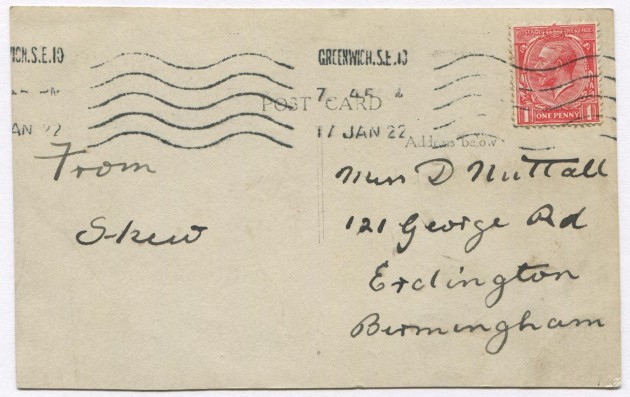 WICH.S.E.10
GREENWICH.S.E.10
7 45
AN 22
17 JAN 22
POST CARD
Address below
POSTAGE REVENUE
1 ONE PENNY 1
From
Skew
Miss D Nuttall
121 George Rd
Erdington
Birmingham